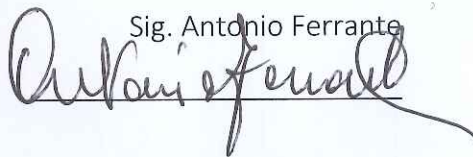 Sig. Antonio Ferrante
Antonio Ferrante